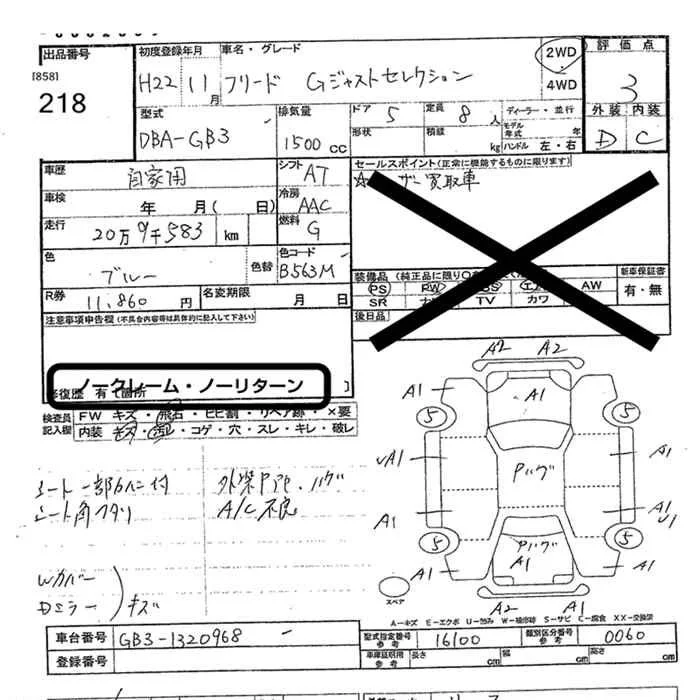 出品番号 初度登録年月 車名・グレード 2WD 4WD 評価点
[858] 218 H22 11月 フリード Gジャストセレクション 3
型式 排気量 ドア 5 定員 8人 ディーラー・並行 外装 内装
DBA-GB3 1500cc 形状 積載 kg モデル年式 年 ハンドル 左・右 D C
車歴 自家用 シフト AT セールスポイント(正常に機能するものに限ります)
車検 年 月(日) 冷房 AAC 買取車
走行 20万9千583 km 燃料 G
色 ブルー 色替 色コード B563M 装備品 (純正品に限り 新車保証書
PS PW AW 有・無
R券 11,860円 名変期限 月 日 SR TV カワ
注意事項申告欄(不具合内容等は具体的に記入して下さい) 後日品
ノークレーム・ノーリターン
修復歴 有 箇所
検査員記入欄 FW キズ・飛石・ヒビ割・リペア跡・×要
内装 キズ・汚レ・コゲ・穴・スレ・キレ・破レ
A2 A2
A1 A1 A1
5 5
UA1 Pハゲ A1
外装 ハゲ
A/C不良
A1 A1 U1
5 5
Pハゲ
A1 A1 A1
Wカバー
Dミラー キズ
スペア
A2 A1
A-キズ E-エクボ U-凹み W-補修跡 S-サビ C-腐食 XX-交換済
車台番号 GB3-1320968 型式指定番号 参考 16100 類別区分番号 参考 0060
登録番号 車庫証取用 参考 長さ cm 幅 cm 高さ cm